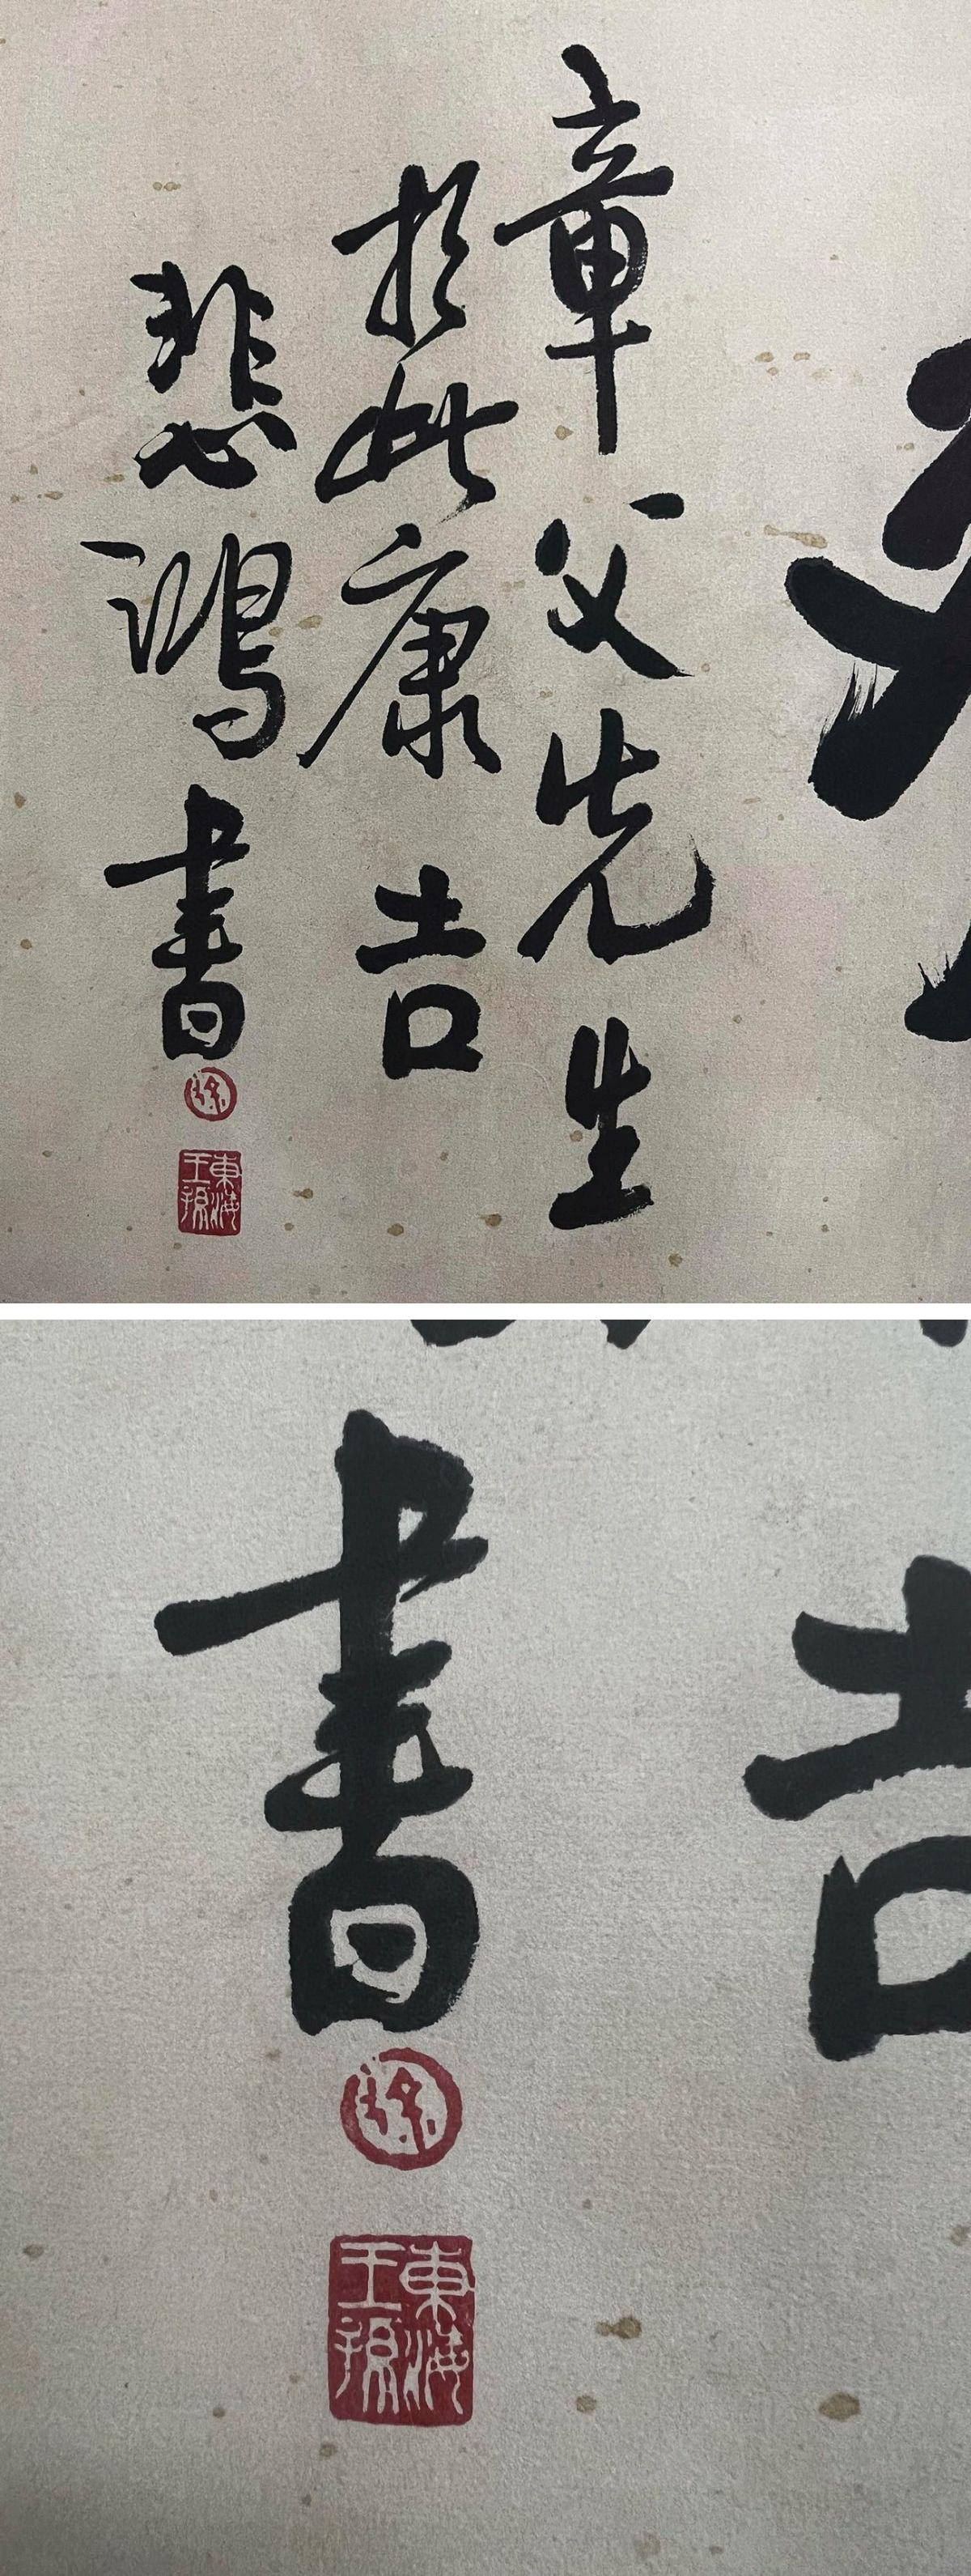 章父先生
於此康吉
悲鴻書
徐
東海王孫
吉
書
徐
東海王孫